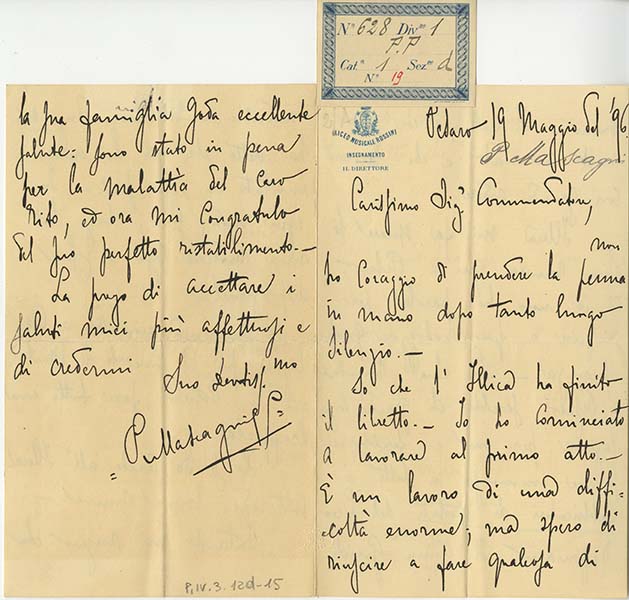 Nº 628 Divne 1
P.P
Cat. 1 Sezne d
Nº 19
LICEO MUSICALE ROSSINI
INSEGNAMENTO
IL DIRETTORE
Pesaro 19 Maggio del '96
P. Mascagni
Carissimo Sig. Commendatore,
non
ho coraggio di prendere la penna
in mano dopo tanto lungo
silenzio.—
So che l'Illica ha finito
il libretto.— Io ho cominciato
a lavorare al primo atto.—
È un lavoro di una diffi-
coltà enorme; ma spero di
riuscire a fare qualcosa di
la sua famiglia goda eccellente
salute: sono stato in pena
per la malattia del caro
Tito, ed ora mi congratulo
del suo perfetto ristabilimento.—
La prego di accettare i
saluti miei più affettuosi e
di credermi Suo Devotiss.mo
= PMascagni =
P.IV.3.12d-15